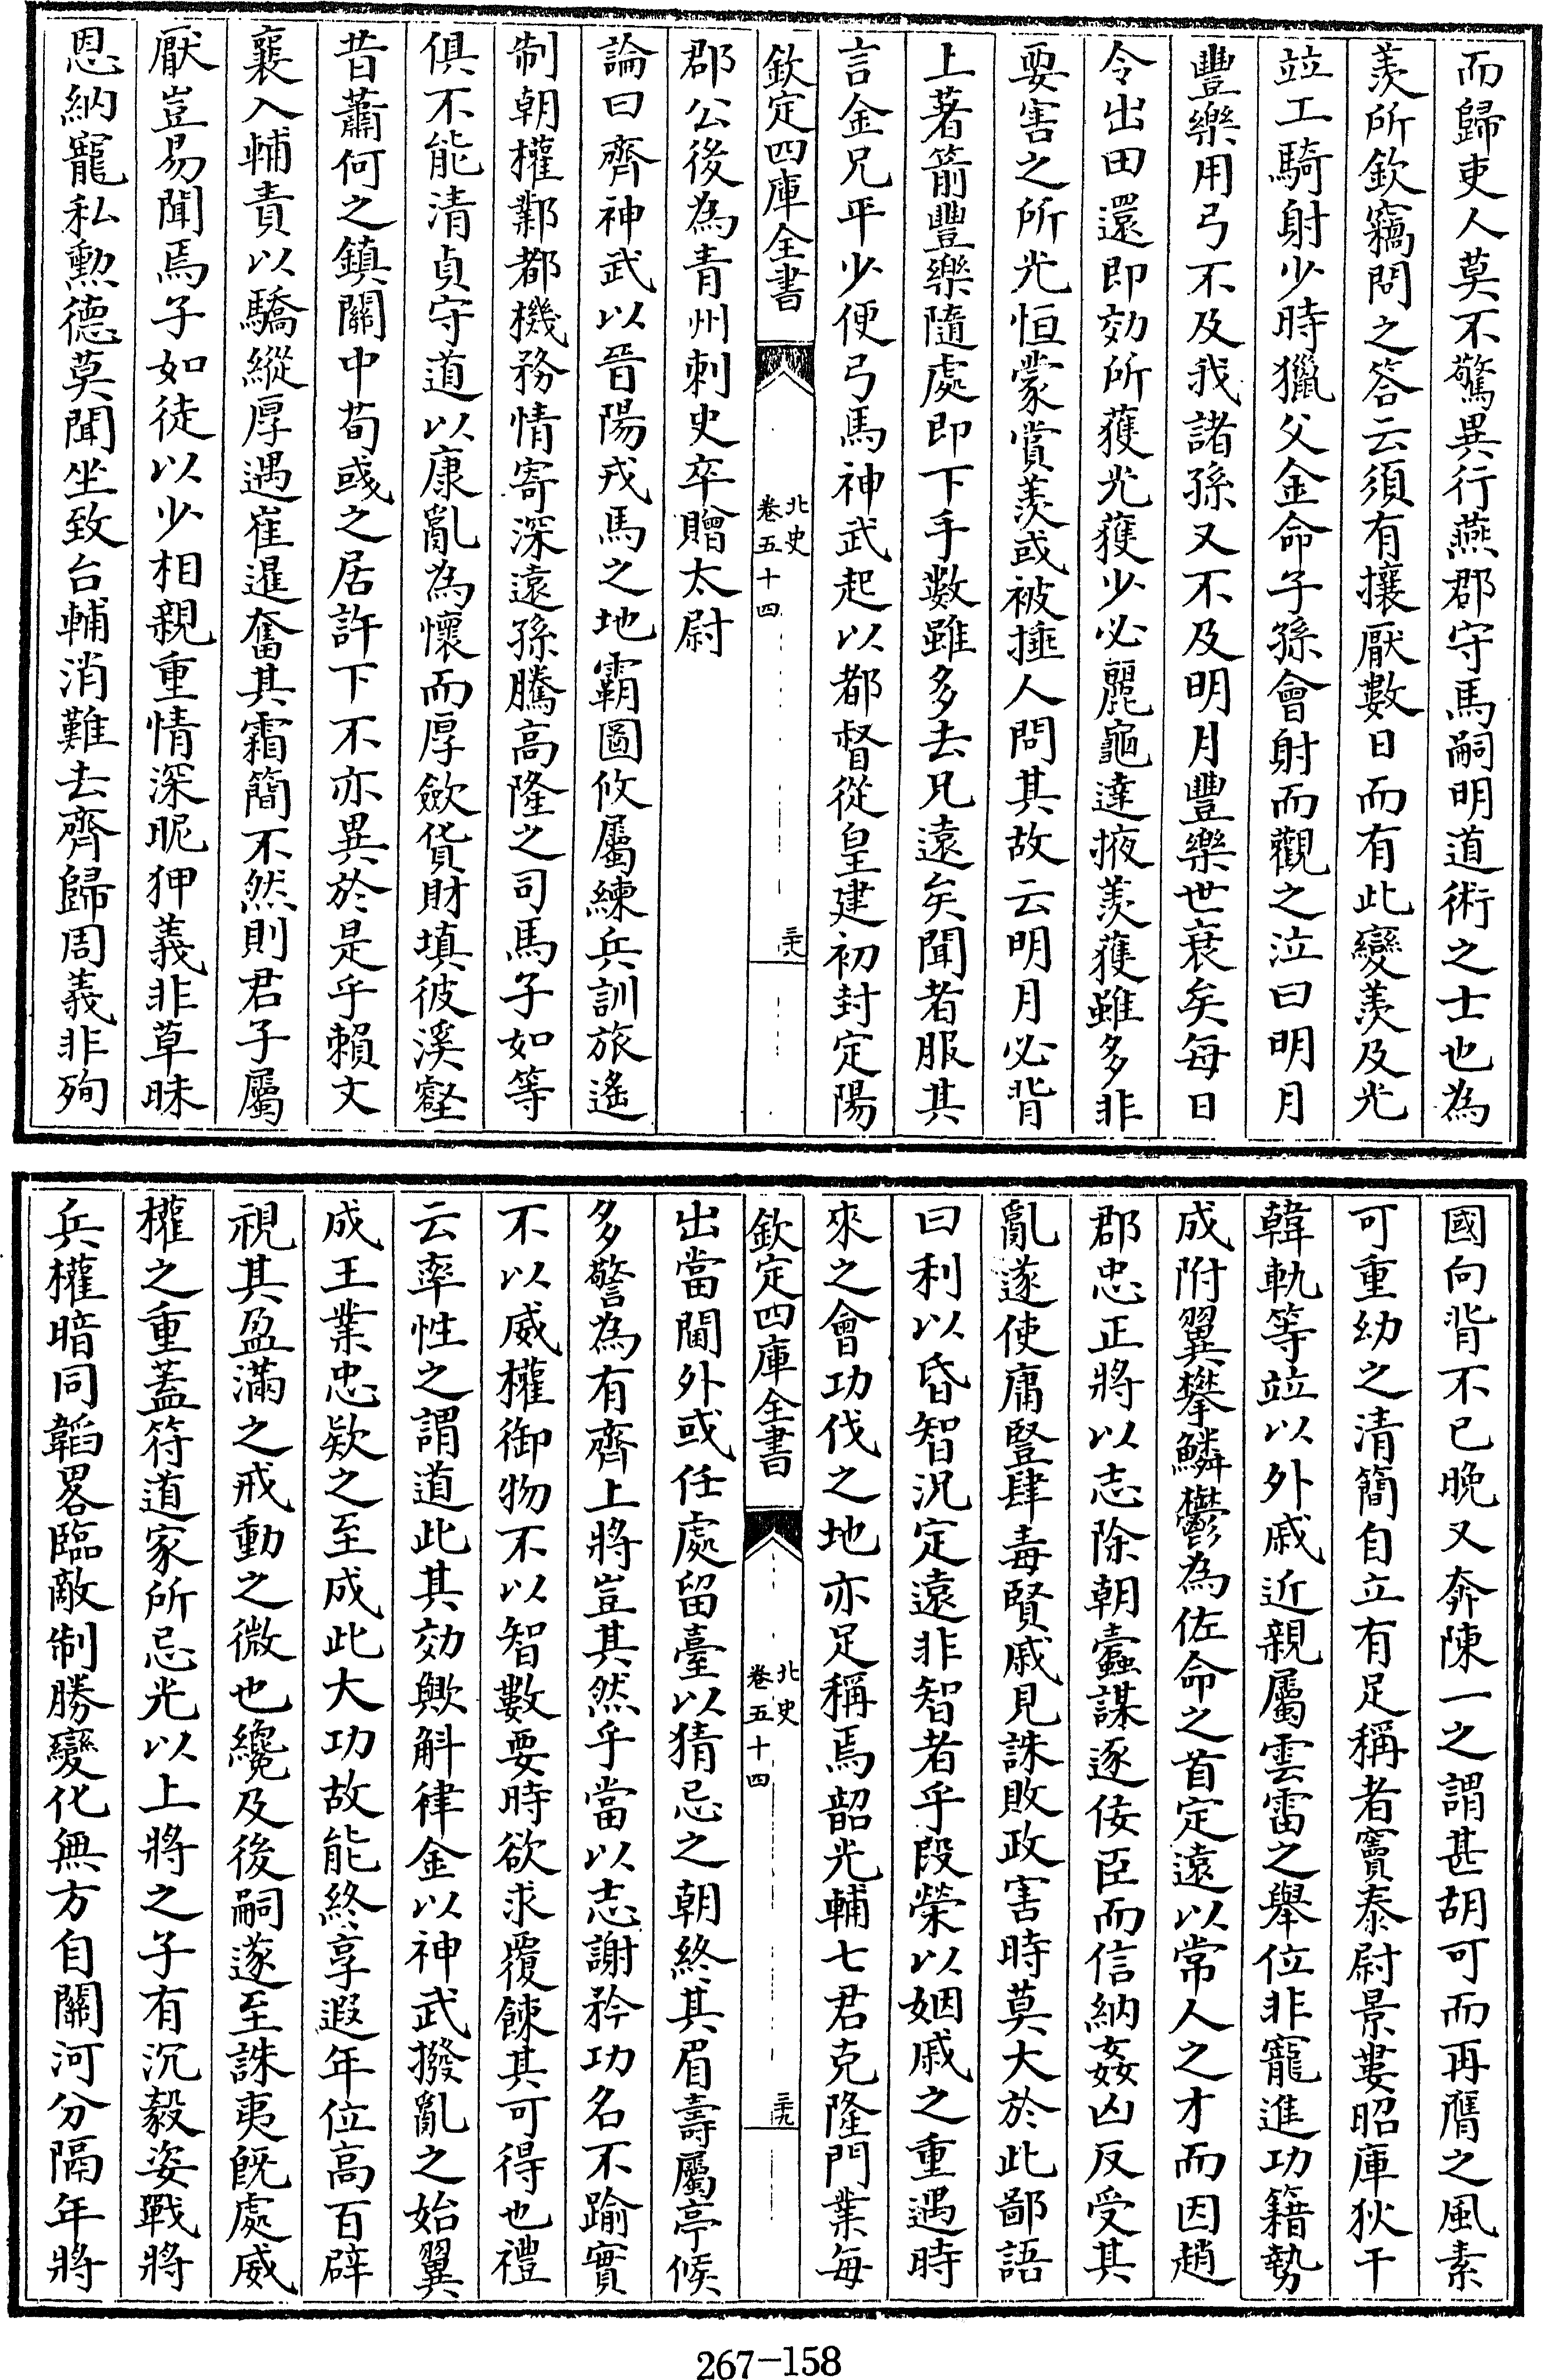 而歸吏人莫不驚異行燕郡守馬嗣明道術之士也為
羨所欽竊問之答云須有攘厭數日而有此變羨及光
竝工騎射少時獵父金命子孫會射而觀之泣曰明月
豐樂用弓不及我諸孫又不及明月豐樂世衰矣每日
令出田還即効所獲光獲少必麗龜達掖羨獲雖多非
要害之所光恒蒙賞羨或被捶人問其故云明月必背
上著箭豐樂隨處即下手數雖多去兄遠矣聞者服其
言金兄平少便弓馬神武起以都督從皇建初封定陽
欽定四庫全書
北史
卷五十四
三十八
郡公後為青州刺史卒贈太尉
論曰齊神武以晉陽戎馬之地霸圖攸屬練兵訓旅遙
制朝權鄴都機務情寄深遠孫騰高隆之司馬子如等
俱不能清貞守道以康亂為懷而厚歛貨財填彼溪壑
昔蕭何之鎮關中荀彧之居許下不亦異於是乎賴文
襄入輔責以驕縱厚遇崔暹奮其霜簡不然則君子屬
厭豈易聞焉子如徒以少相親重情深昵狎義非草昧
恩納寵私勲德莫聞坐致台輔消難去齊歸周義非殉
國向背不已晚又奔陳一之謂甚胡可而再膺之風素
可重幼之清簡自立有足稱者竇泰尉景婁昭庫狄干
韓軌等竝以外戚近親屬雲雷之舉位非寵進功籍勢
成附翼攀鱗鬱為佐命之首定遠以常人之才而因趙
郡忠正將以志除朝蠹謀逐佞臣而信納姦凶反受其
亂遂使庸豎肆毒賢戚見誅敗政害時莫大於此鄙語
曰利以昏智況定遠非智者乎段榮以姻戚之重遇時
來之會功伐之地亦足稱焉韶光輔七君克隆門業每
欽定四庫全書
北史
卷五十四
三十九
出當閫外或任處留臺以猜忌之朝終其眉壽屬亭候
多警為有齊上將豈其然乎當以志謝矜功名不踰實
不以威權御物不以智數要時欲求覆餗其可得也禮
云率性之謂道此其効歟斛律金以神武撥亂之始翼
成王業忠欵之至成此大功故能終享遐年位高百辟
視其盈滿之戒動之微也纔及後嗣遂至誅夷旣處威
權之重蓋符道家所忌光以上將之子有沉毅姿戰將
兵權暗同韜畧臨敵制勝變化無方自關河分隔年將
267-158